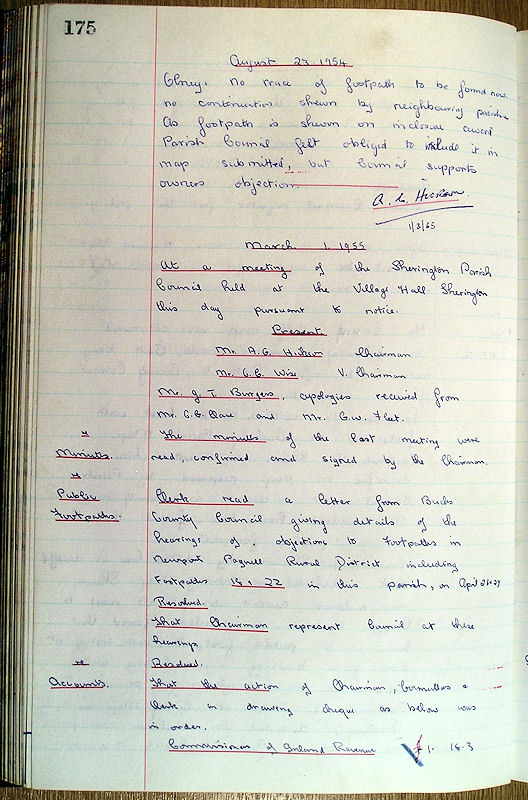 175
August 23 1954
Olney. No trace of footpath to be found now.
no continuation shewn by neighbouring parish.
As footpath is shewn on inclosure award
Parish Council felt obliged to include it in
map submitted, but Council supports
owners objection.
1/3/55
March 1. 1955
At a meeting of the Sherington Parish
Council held at the Village Hall Sherington
this day pursuant to notice.
Present.
Mr. A.G. Chairman
Mr. C.E. Wise V. Chairman
Mr. J. T. Burgess, apologies received from
Mr. C.E. and Mr. G.W. Fleet.
Minutes. The minutes of the last meeting were
read, confirmed and signed by the Chairman.
Public Clerk read a letter from Bucks
Footpaths. County Council giving details of the
hearings of objections to Footpaths in
Newport Pagnell Rural District including
Footpaths 18 & 22 in this parish, on April 26 & 27
Resolved.
That Chairman represent Council at these
hearings
Resolved.
Accounts. That the action of Chairman, Councillors &
Clerk in drawing cheque as below was
in order.
Commissioner of Inland Revenue £1. 18. 3